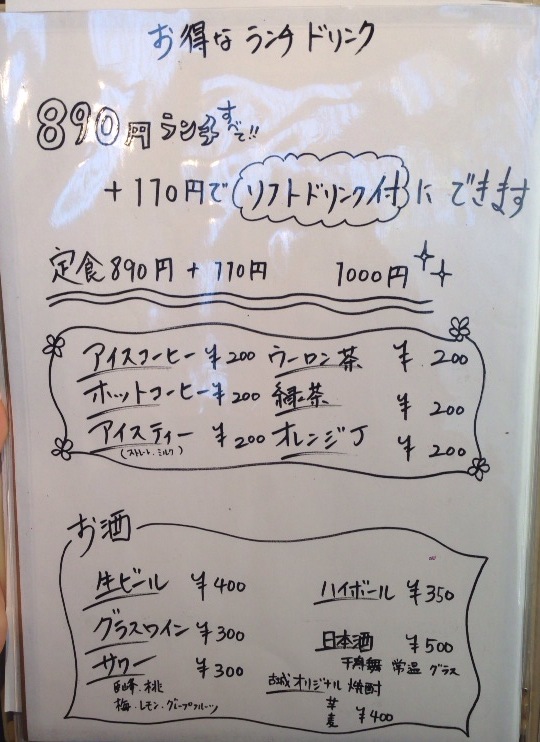 お得な ランチ ドリンク
890円 ランチ すべて!!
+110円で ソフトドリンク付 に できます
定食 890円 + 110円 1000円
アイスコーヒー ¥200 ウーロン茶 ¥200
ホットコーヒー ¥200 緑茶 ¥200
アイスティー ¥200 オレンジJ ¥200
(ストレート・ミルク)
お酒
生ビール ¥400 ハイボール ¥350
グラスワイン ¥300 日本酒 ¥500
千寿舞 常温 グラス
サワー ¥300 古城 オリジナル 焼酎
桃
梅・レモン・グレープフルーツ
芋
麦 ¥400